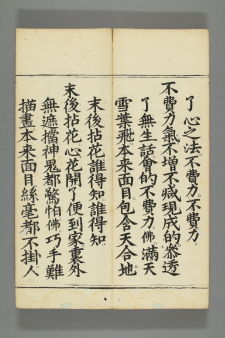 了心之法不費力不費力
不費力氣不增不減現成的參透
了無生話會的不費力佛滿天
雪葉飛本来面目包含天合地
末後拈花誰得知誰得知
末後拈花心花開了便到家裏外
無遮擋神鬼都驚怕佛巧手難
描畫本来面目絲毫都不掛人